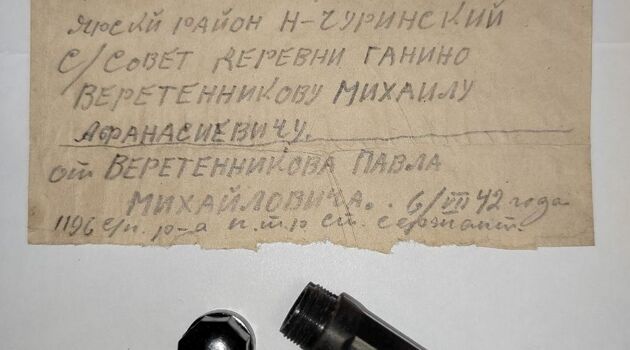 ЯРСКИ РАЙОН Н-ЧУРИНСКИЙ
С/СОВЕТ ДЕРЕВНИ ГАНИНО
ВЕРЕТЕННИКОВУ МИХАИЛУ
АФАНАСИЕВИЧУ.
от ВЕРЕТЕННИКОВА ПАВЛА
МИХАЙЛОВИЧА. . 6/VII 42 года
1196 с/п. р-а п.т.р ст. сержант.